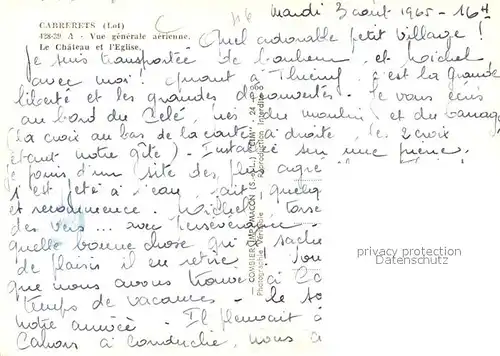 CABRERETS (Lot)
428-29 A - Vue générale aérienne.
Le Château et l'Eglise.
mardi 3 août 1965 - 16H
Quel adorable petit village !
Je suis transportée de bonheur, et Michel
avec moi ! Quant à Thierry, c'est la grande
liberté et les grandes découvertes. Je vous écris
au bord du Célé, près du moulin et du barrage
(la croix au bas de la carte à droite, les 2 croix
étant notre gîte). Installée sur une pierre,
je jouis d'un site des plus agré
s'est jeté à l'eau, fait quelq
et recommence. Michel
des vers ... avec persévérance.
quelle bonne chose qui
de plaisir il en retire
que nous avons trouvé à Ca
temps de vacances - le
notre arrivée. Il pleuvait à
Cahors à conduché, nous a
COMBIER IMP. MACON (S.-&-L.)
Photographie Véritable - Reproduction Interdite
privacy protection
Datenschutz